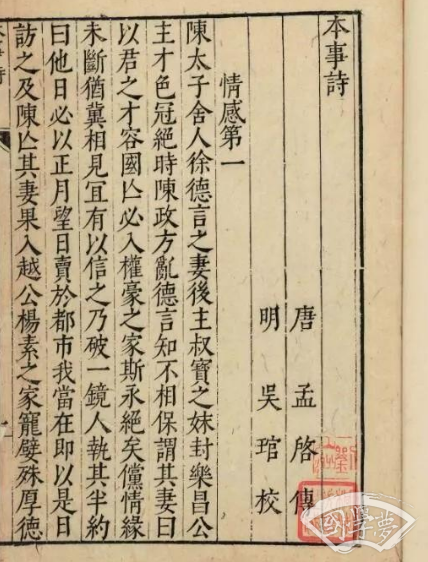 本事詩
唐 孟啓傳
明 吳琯校
情感第一
陳太子舍人徐德言之妻後主叔寶之妹封樂昌公
主才色冠絕時陳政方亂德言知不相保謂其妻曰
以君之才容國亾必入權豪之家斯永絕矣儻情緣
未斷猶冀相見宜有以信之乃破一鏡人執其半約
曰他日必以正月望日賣於都市我當在即以是日
訪之及陳亾其妻果入越公楊素之家寵嬖殊厚德
國學夢